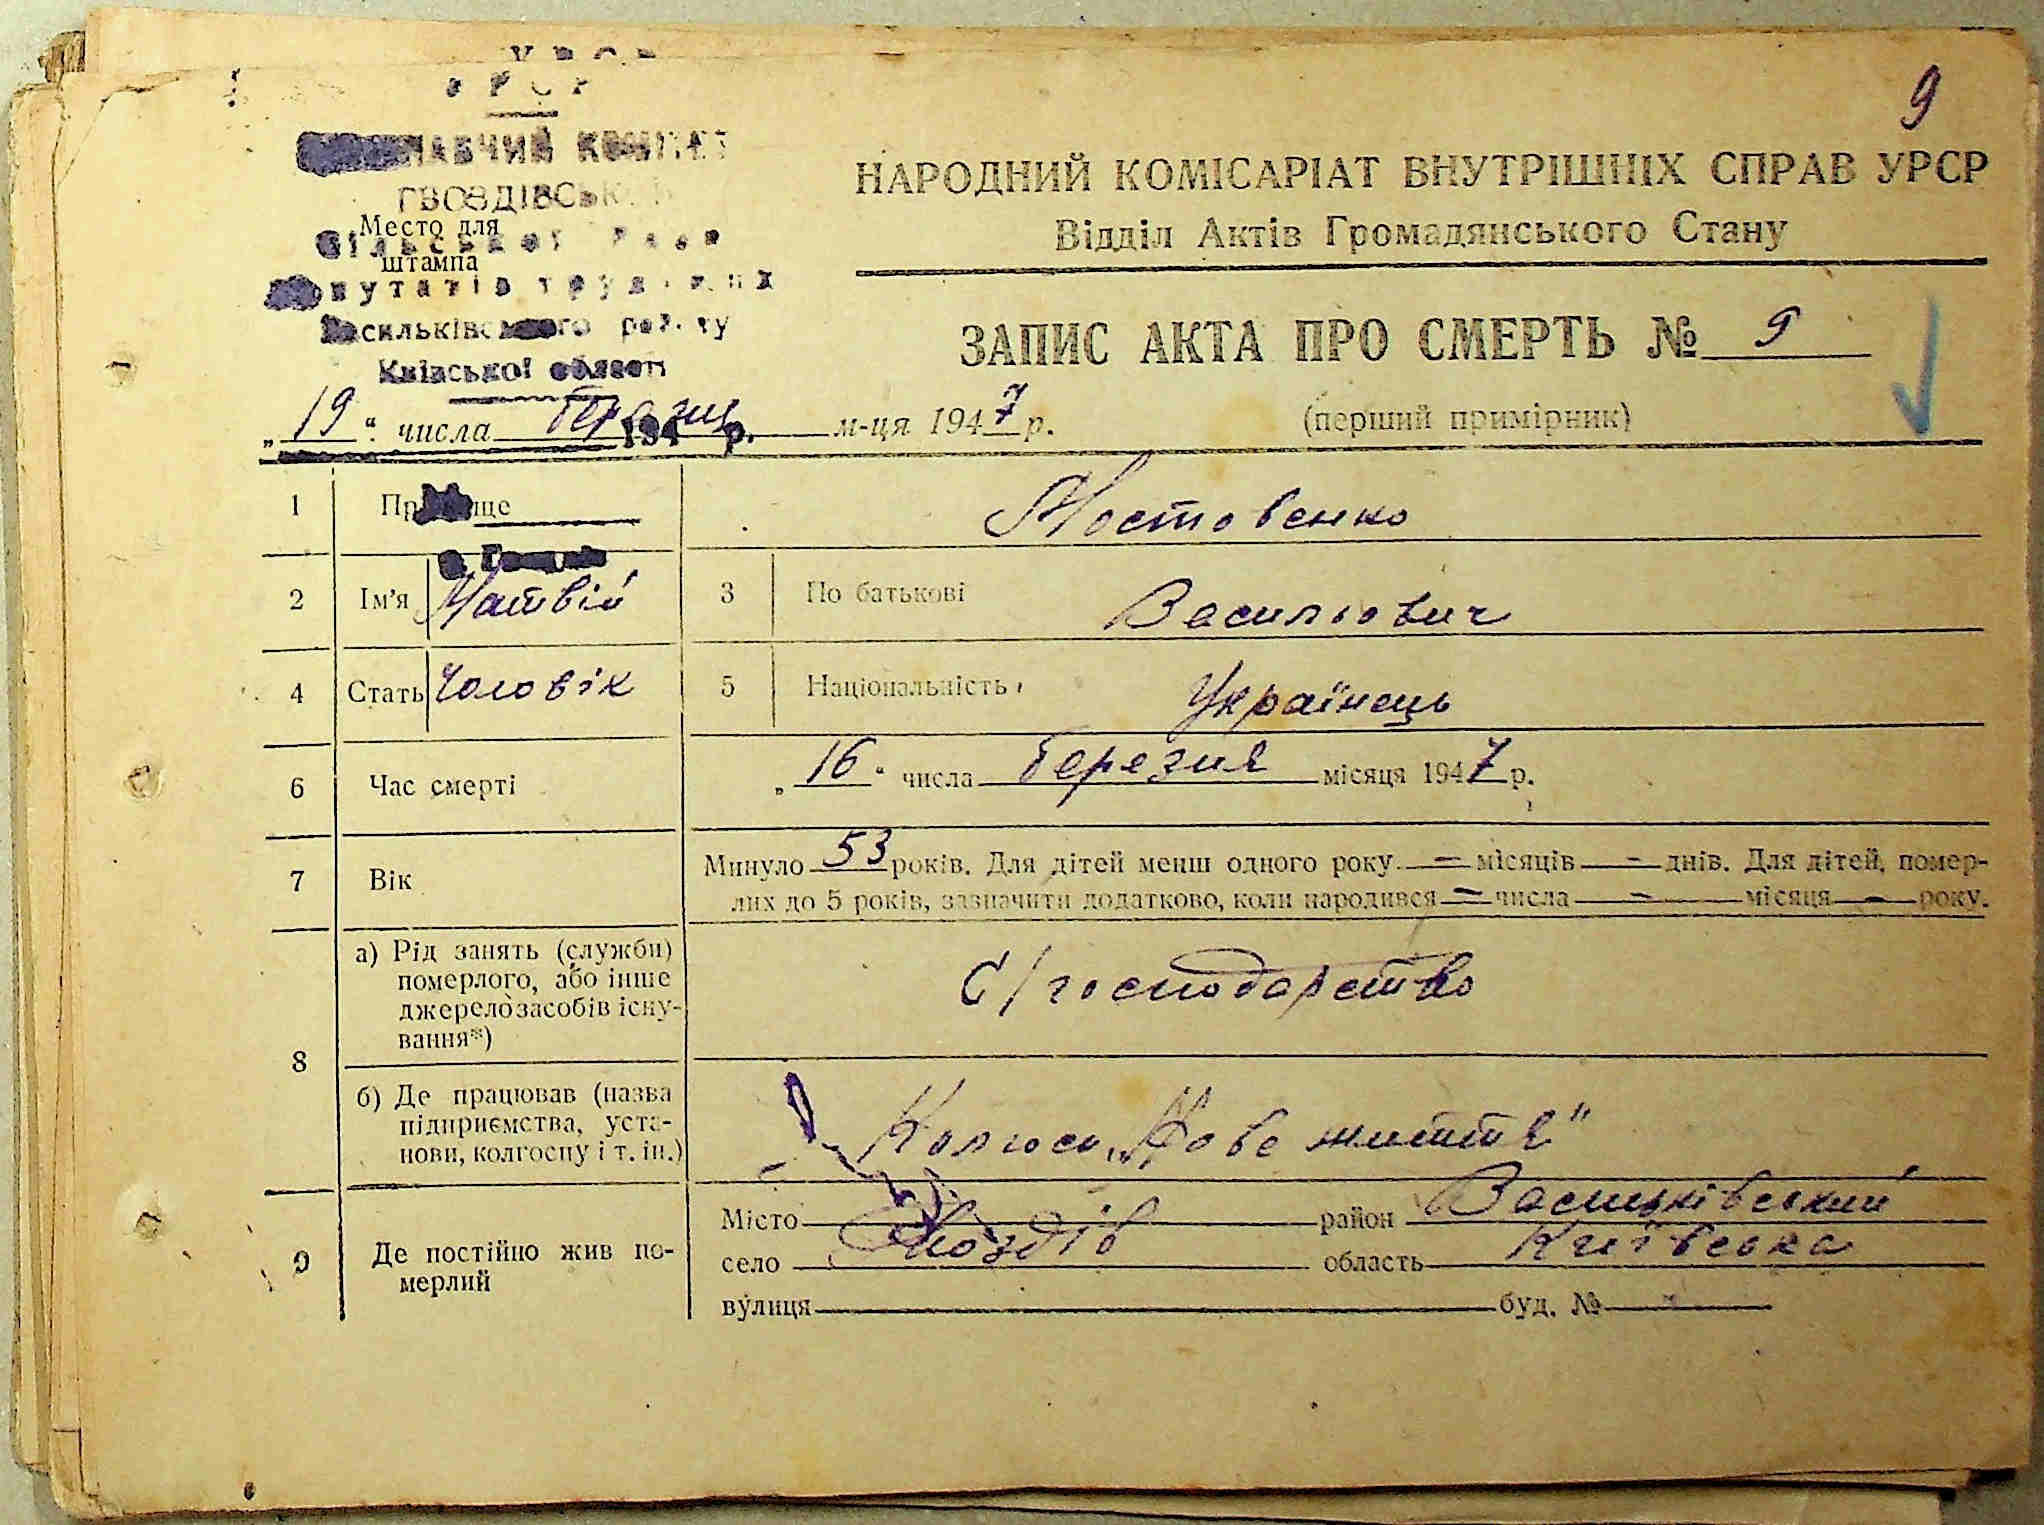 9
УРСР
УРСР
ВИКОНАВЧИЙ КОМІТЕТ
ГВОЗДІВСЬКОЇ
Место для
Сільської Ради
штампа
депутатів трудящих
Васильківського району
Київської області
194 р.
с. Гвоздів
НАРОДНИЙ КОМІСАРІАТ ВНУТРІШНІХ СПРАВ УРСР
Відділ Актів Громадянського Стану
ЗАПИС АКТА ПРО СМЕРТЬ № 9
„19“ числа березня м-ця 1947 р.
(перший примірник)
1 Прізвище Мостовенко
2 Ім'я Матвій 3 По батькові Васильович
4 Стать Чоловік 5 Національність Українець
6 Час смерті „16“ числа березня місяця 1947 р.
7 Вік Минуло 53 років. Для дітей менш одного року — місяців — днів. Для дітей, помер-
лих до 5 років, зазначити додатково, коли народився — числа — місяця — року.
8
а) Рід занять (служби)
померлого, або інше
джерело засобів існу-
вання*)
С/господарство
б) Де працював (назва
підприємства, уста-
нови, колгоспу і т. ін.)
Колгосп „Нове життя"
9 Де постійно жив по-
мерлий
Місто район Васильківський
село Гвоздів область Київська
вулиця буд. №